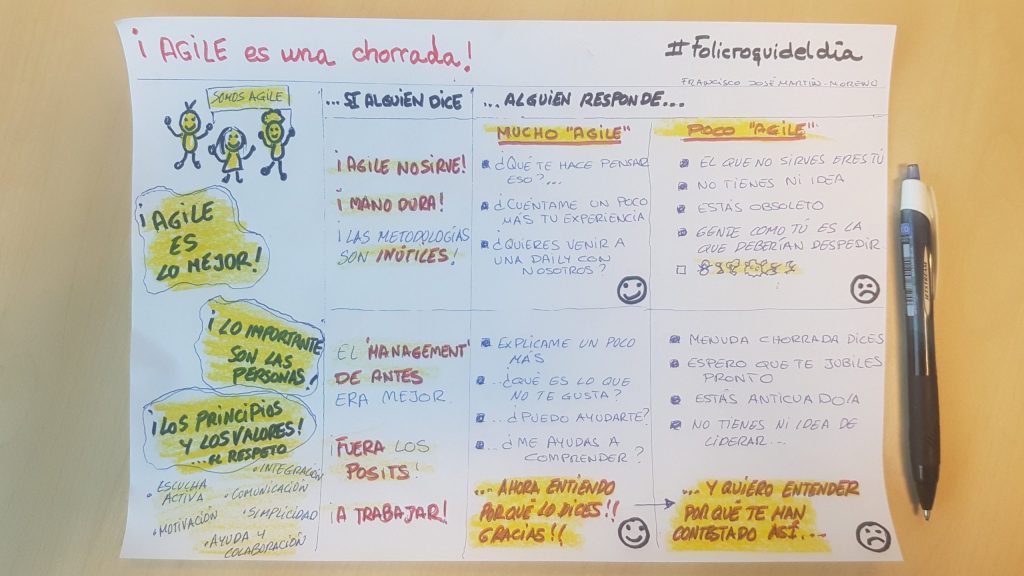 ¡ AGILE es una chorrada!
#Folicroquideldía
FRANCISCO JOSÉ MARTÍN-MORENO
SOMOS AGILE
¡ AGILE
ES
LO MEJOR!
¡ LO IMPORTANTE
SON LAS
PERSONAS!
¡LOS PRINCIPIOS
Y LOS VALORES!
... EL RESPETO
• ESCUCHA
ACTIVA
• INTEGRACIÓN
• COMUNICACIÓN
• MOTIVACIÓN
• SIMPLICIDAD
• AYUDA Y
COLABORACIÓN
...SI ALGUIÉN DICE
¡AGILE NO SIRVE!
¡MANO DURA!
¡LAS METODOLOGÍAS
SON INÚTILES!
EL 'MANAGEMENT'
DE ANTES
ERA MEJOR.
¡FUERA LOS
POSITS!
¡A TRABAJAR!
...ALGUIÉN RESPONDE...
MUCHO "AGILE"
¿QUÉ TE HACE PENSAR
ESO?...
¿CUÉNTAME UN POCO
MÁS TU EXPERIENCIA
¿QUIERES VENIR A
UNA DAILY CON
NOSOTROS?
EXPLÍCAME UN POCO
MÁS
...¿QUÉ ES LO QUE
NO TE GUSTA?
...¿PUEDO AYUDARTE?
...¿ME AYUDAS A
COMPRENDER?
... AHORA ENTIENDO
PORQUÉ LO DICES!!
GRACIAS!!
POCO "AGILE"
EL QUE NO SIRVES ERES TÚ
NO TIENES NI IDEA
ESTÁS OBSOLETO
GENTE COMO TÚ ES LA
QUE DEBERÍAN DESPEDIR
MENUDA CHORRADA DICES
ESPERO QUE TE JUBILES
PRONTO
ESTÁS ANTICUADO/A
NO TIENES NI IDEA DE
LIDERAR...
... Y QUIERO ENTENDER
PORQUÉ TE HAN
CONTESTADO ASÍ....